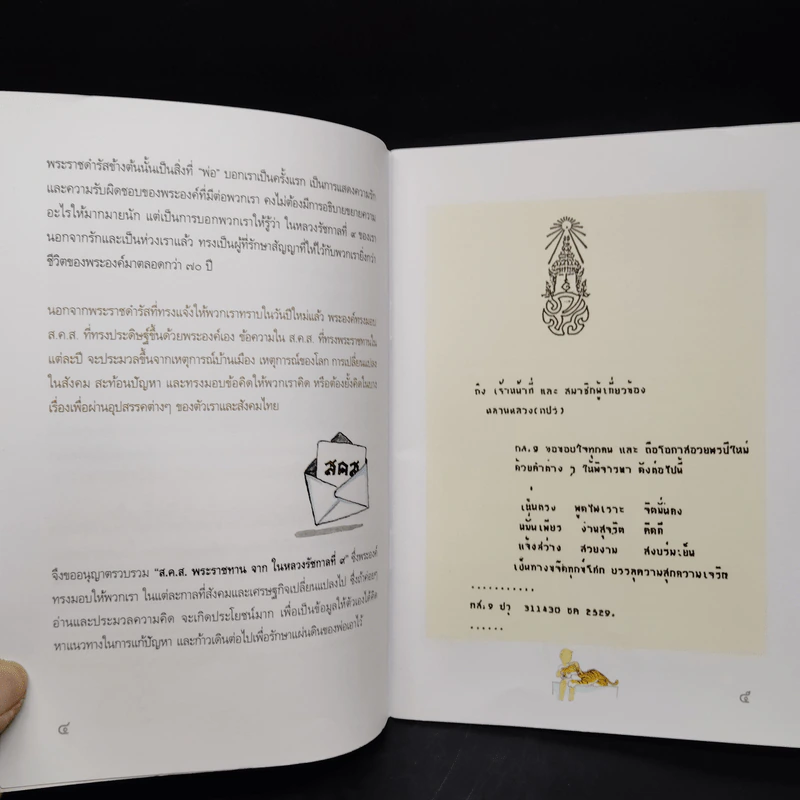 พระราชดำรัสข้างต้นนั้นเป็นสิ่งที่ "พ่อ" บอกเราเป็นครั้งแรก เป็นการแสดงความรัก
และความรับผิดชอบของพระองค์ที่มีต่อพวกเรา คงไม่ต้องมีการอธิบายขยายความ
อะไรให้มากมายนัก แต่เป็นการบอกพวกเราให้รู้ว่า ในหลวงรัชกาลที่ ๙ ของเรา
นอกจากรักและเป็นห่วงเราแล้ว ทรงเป็นผู้ที่รักษาสัญญาที่ให้ไว้กับพวกเรายิ่งกว่า
ชีวิตของพระองค์มาตลอดกว่า ๗๐ ปี
นอกจากพระราชดำรัสที่ทรงแจ้งให้พวกเราทราบในวันปีใหม่แล้ว พระองค์ทรงมอบ
ส.ค.ส. ที่ทรงประดิษฐ์ขึ้นด้วยพระองค์เอง ข้อความใน ส.ค.ส. ที่ทรงพระราชทานใน
แต่ละปี จะประมวลขึ้นจากเหตุการณ์บ้านเมือง เหตุการณ์ของโลก การเปลี่ยนแปลง
ในสังคม สะท้อนปัญหา และทรงมอบข้อคิดให้พวกเราคิด หรือต้องยั้งคิดในบาง
เรื่องเพื่อผ่านอุปสรรคต่างๆ ของตัวเราและสังคมไทย
ส ค ส
จึงขออนุญาตรวบรวม "ส.ค.ส. พระราชทาน จาก ในหลวงรัชกาลที่ ๙" ซึ่งพระองค์
ทรงมอบให้พวกเรา ในแต่ละกาลที่สังคมและเศรษฐกิจเปลี่ยนแปลงไป ซึ่งถ้าค่อยๆ
อ่านและประมวลความคิด จะเกิดประโยชน์มาก เพื่อเป็นข้อมูลให้ตัวเองได้คิด
หาแนวทางในการแก้ปัญหา และก้าวเดินต่อไปเพื่อรักษาแผ่นดินของพ่อเอาไว้
๔
ถึง เจ้าหน้าที่ และ สมาชิกผู้เกี่ยวข้อง
กส.9 ขอขอบใจทุกคน และ ถือโอกาสอวยพรปีใหม่
ด้วยคำต่าง ๆ ในพิจารหา ดังต่อไปนี้
พูดไพเราะ จิตมั่นคง
หมั่นเพียร งานสุจริต คิดดี
แจ้งสว่าง สวยงาม สงบร่มเย็น
เป็นทางขจัดทุกข์โศก บรรลุความสุกความเจริญ
...........
กส.9 ปรุ 311430 ธค 2529.
......
๕